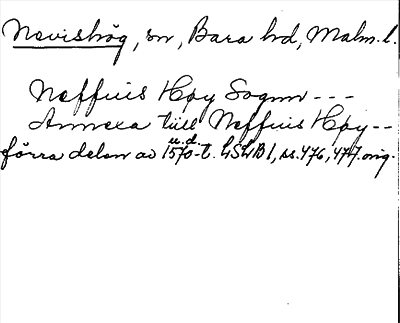 Nevishög, sn, Bara hd, Malm. l.
Neffuis Høy Sognn ---
Annexa tiill Neffuis Høy --
u.d.
förra delen av 1570-t. LSLB1, ss. 476, 477. orig.